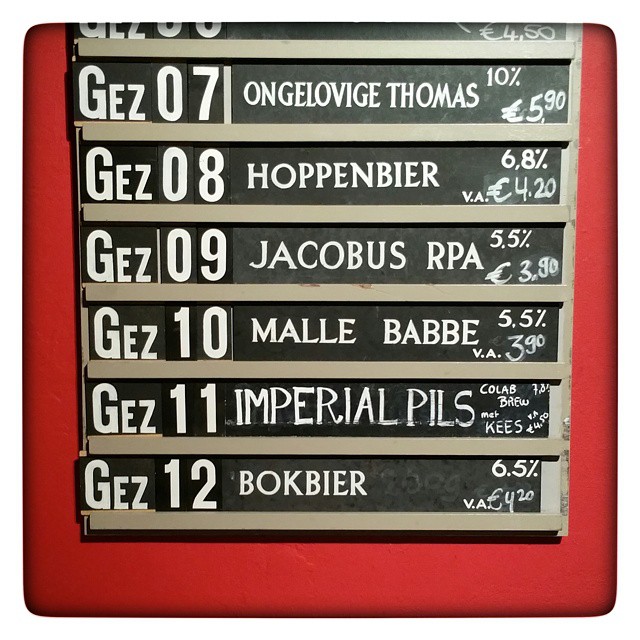 €4,50
GEZ 07 ONGELOVIGE THOMAS 10% €5,90
GEZ 08 HOPPENBIER 6,8% V.A. €4.20
GEZ 09 JACOBUS RPA 5,5% € 3,90
GEZ 10 MALLE BABBE 5,5% V.A. 3,90
GEZ 11 IMPERIAL PILS COLAB BREW met KEES
GEZ 12 BOKBIER 6.5% V.A. €4,20